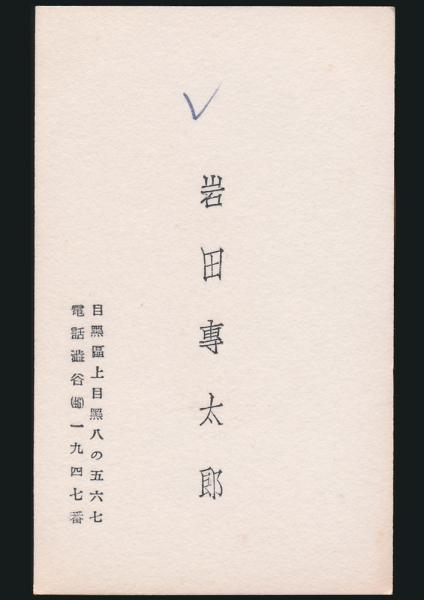 岩田專太郎
目黑區上目黑八の五六七
電話澁谷一九四七番